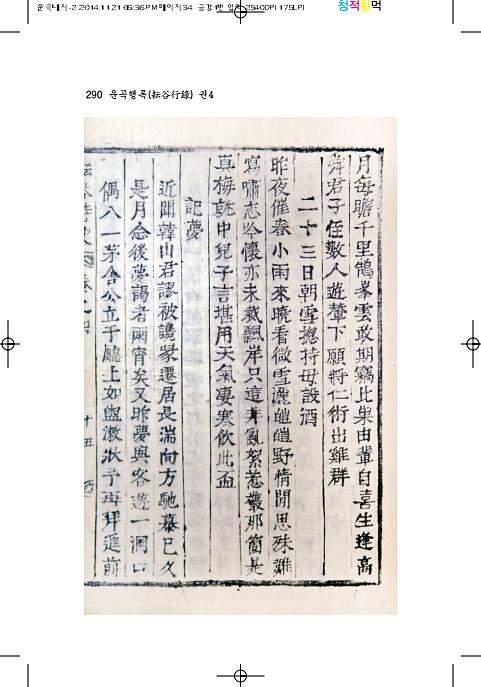 운곡대지-2 2014.11.21 05:36 PM 페이지34 2540DPI 175LPI
청적황먹
290 운곡행록(耘谷行錄) 권4
月每瞻千里鵠峯雲敢期竊比巢由輩自喜生逢高
舜君子侄數人遊輦下願將仁術出雞群
二十三日朝雪摠持母設酒
昨夜催春小雨來曉看微雪灑皚皚野情閒思殊難
寫嘯志吟懷亦未裁飄岸只這幷亂絮惹叢那箇是
眞梅就中兒子言堪用天氣凄寒飮此盃
記夢
近聞韓山君謬被讒家遷居長湍向方馳慕已久
是月念後夢謁者兩宵矣又昨夢與客遊一洞口
偶入一茅舍公立于廳上如盥漱狀予再拜進前
十五